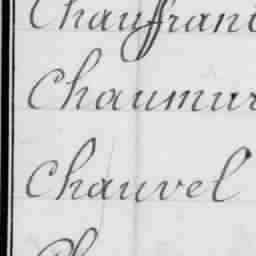 Chauffran
Chaumur
Chauvel
Ch